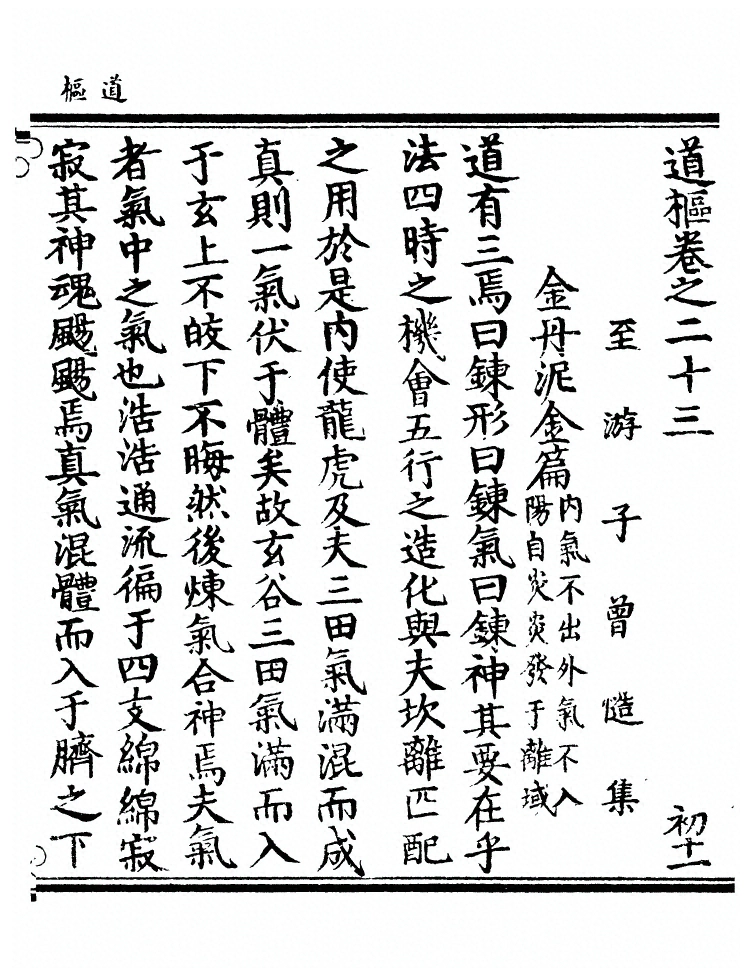 道樞
道樞卷之二十三 初十一
至游子曾慥集
金丹泥金篇 內氣不出外氣不入
陽自炎炎發于離域
道有三焉曰鍊形曰鍊氣曰鍊神其要在乎
法四時之機會五行之造化與夫坎離匹配
之用於是內使龍虎及夫三田氣滿混而成
真則一氣伏于體矣故玄谷三田氣滿而入
于玄上不皎下不晦然後煉氣合神焉夫氣
者氣中之氣也浩浩通流徧于四支綿綿寂
寂其神魂颺颺焉真氣混體而入于臍之下